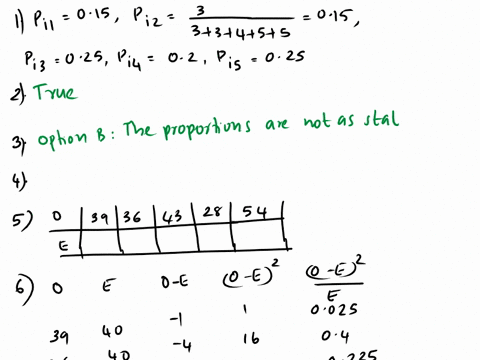 1) Pi1 = 0.15, Pi2 = 3/(3+3+4+5+5) = 0.15,
Pi3 = 0.25, Pi4 = 0.2, Pi5 = 0.25
2) True
3) Option B: The proportions are not as stat
4)
5) O 39 36 43 28 54
E
6) O E O-E (O-E)² (O-E)²/E
39 40 -1 1 0.025
40 -4 16 0.4